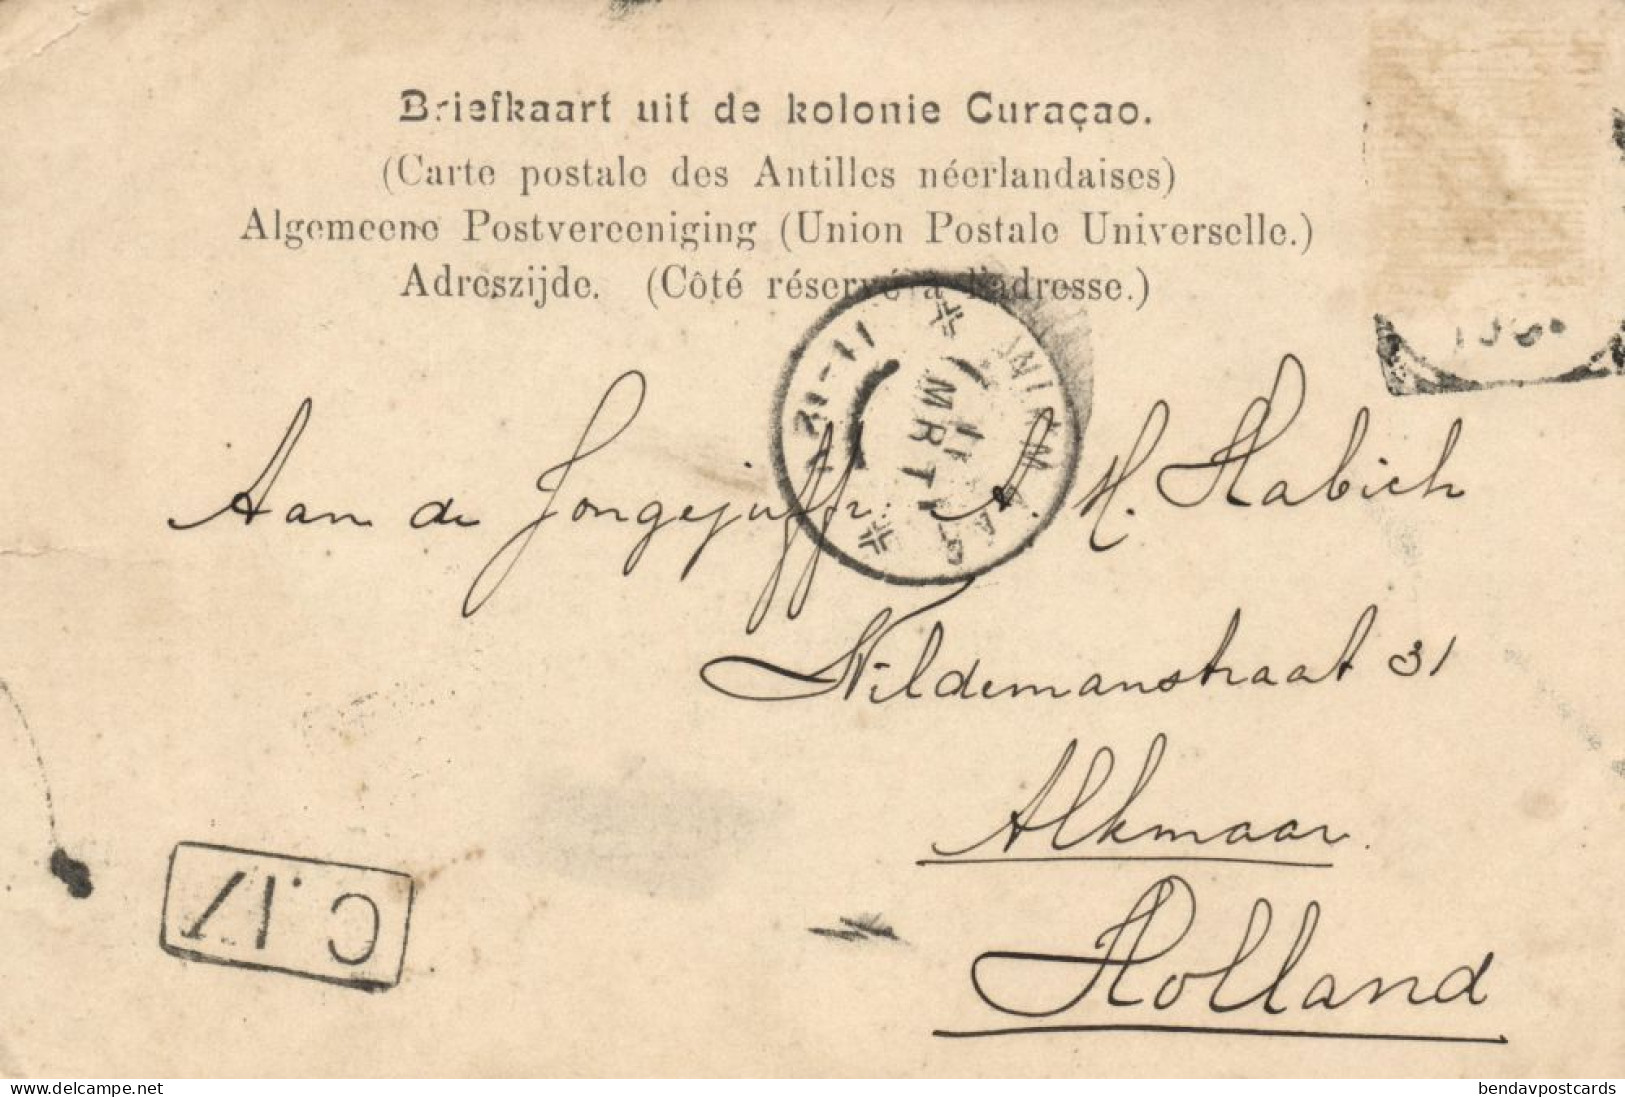 Briefkaart uit de kolonie Curaçao.
(Carte postale des Antilles néerlandaises)
Algemeene Postvereeniging (Union Postale Universelle.)
Adreszijde. (Côté réservé à l'adresse.)
MRT
Aan de Jongejuffr. A. H. Habich
Wildemanstraat 31
Alkmaar.
Holland
C. 17
www.delcampe.net
bendavpostcards